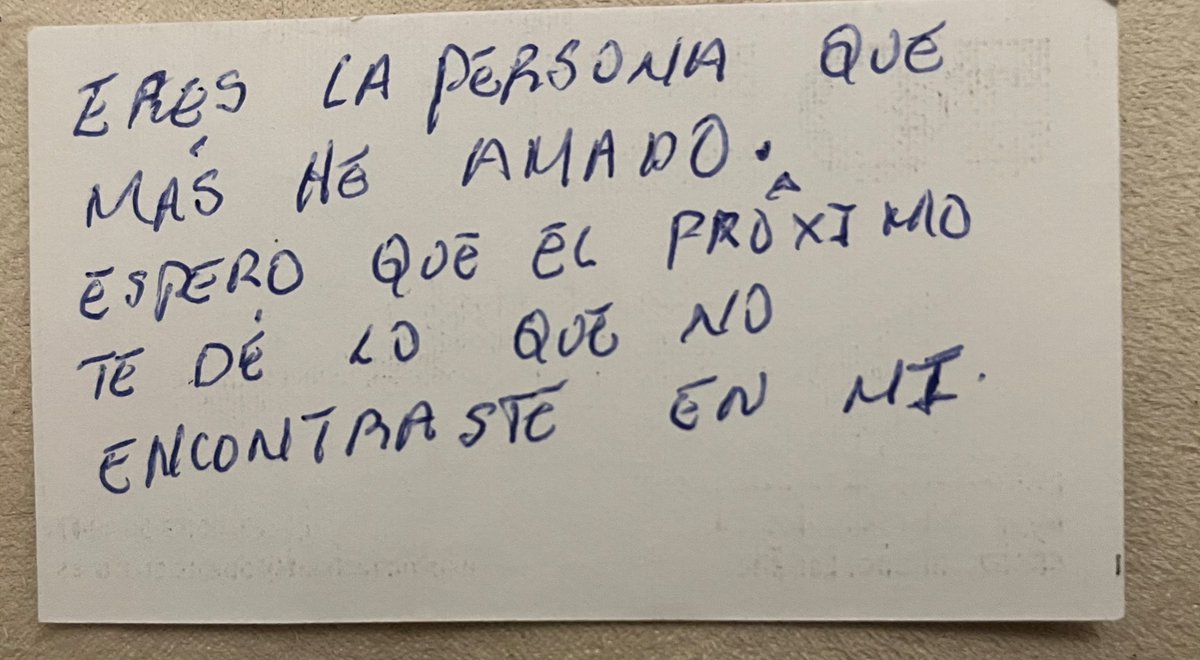 ERES LA PERSONA QUE
MÁS HE AMADO.
ESPERO QUE EL PRÓXIMO
TE DÉ LO QUE NO
ENCONTRASTE EN MI.